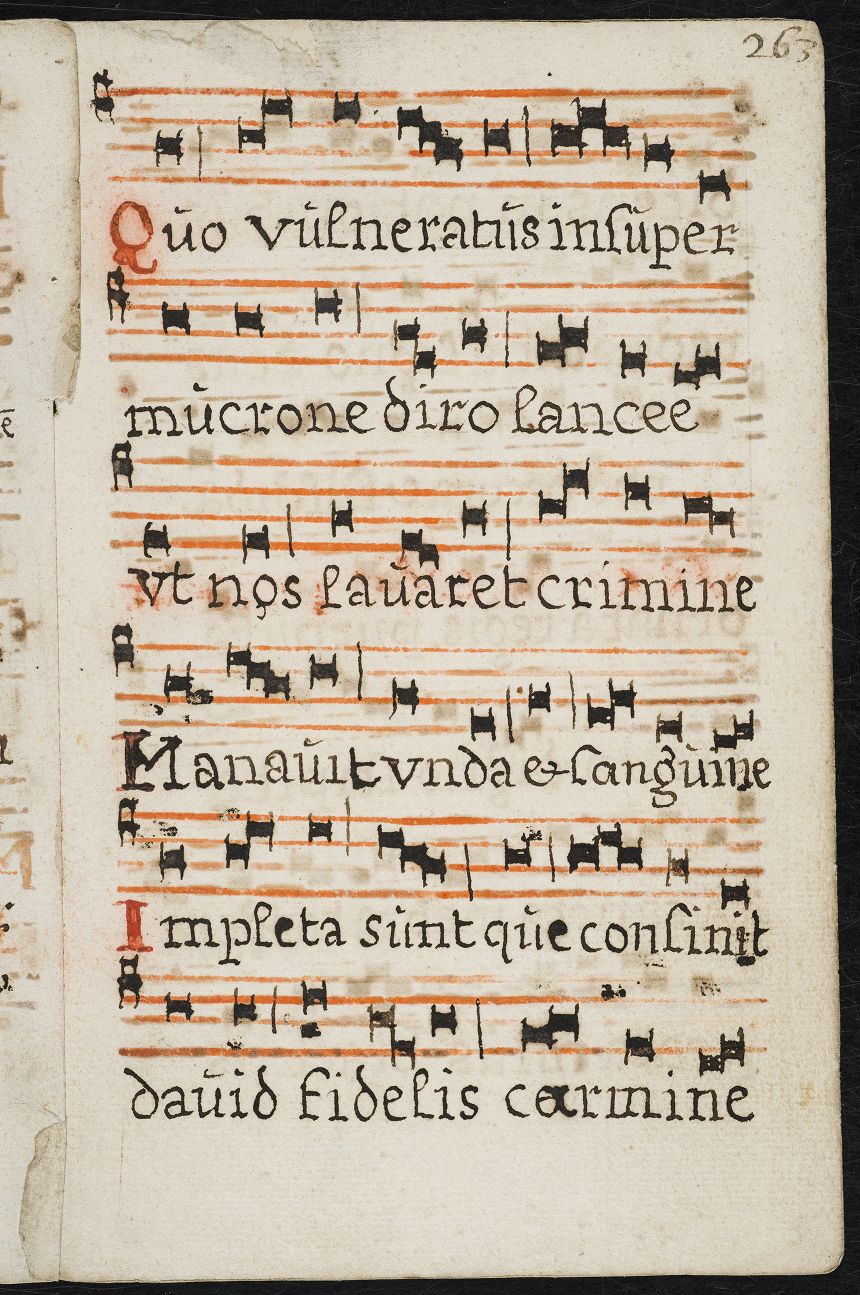 263
Quo vulneratus insuper
mucrone diro lancee
vt nos lauaret crimine
Manauit vnda & sanguine
Impleta sunt que consinit
dauid fidelis carmine